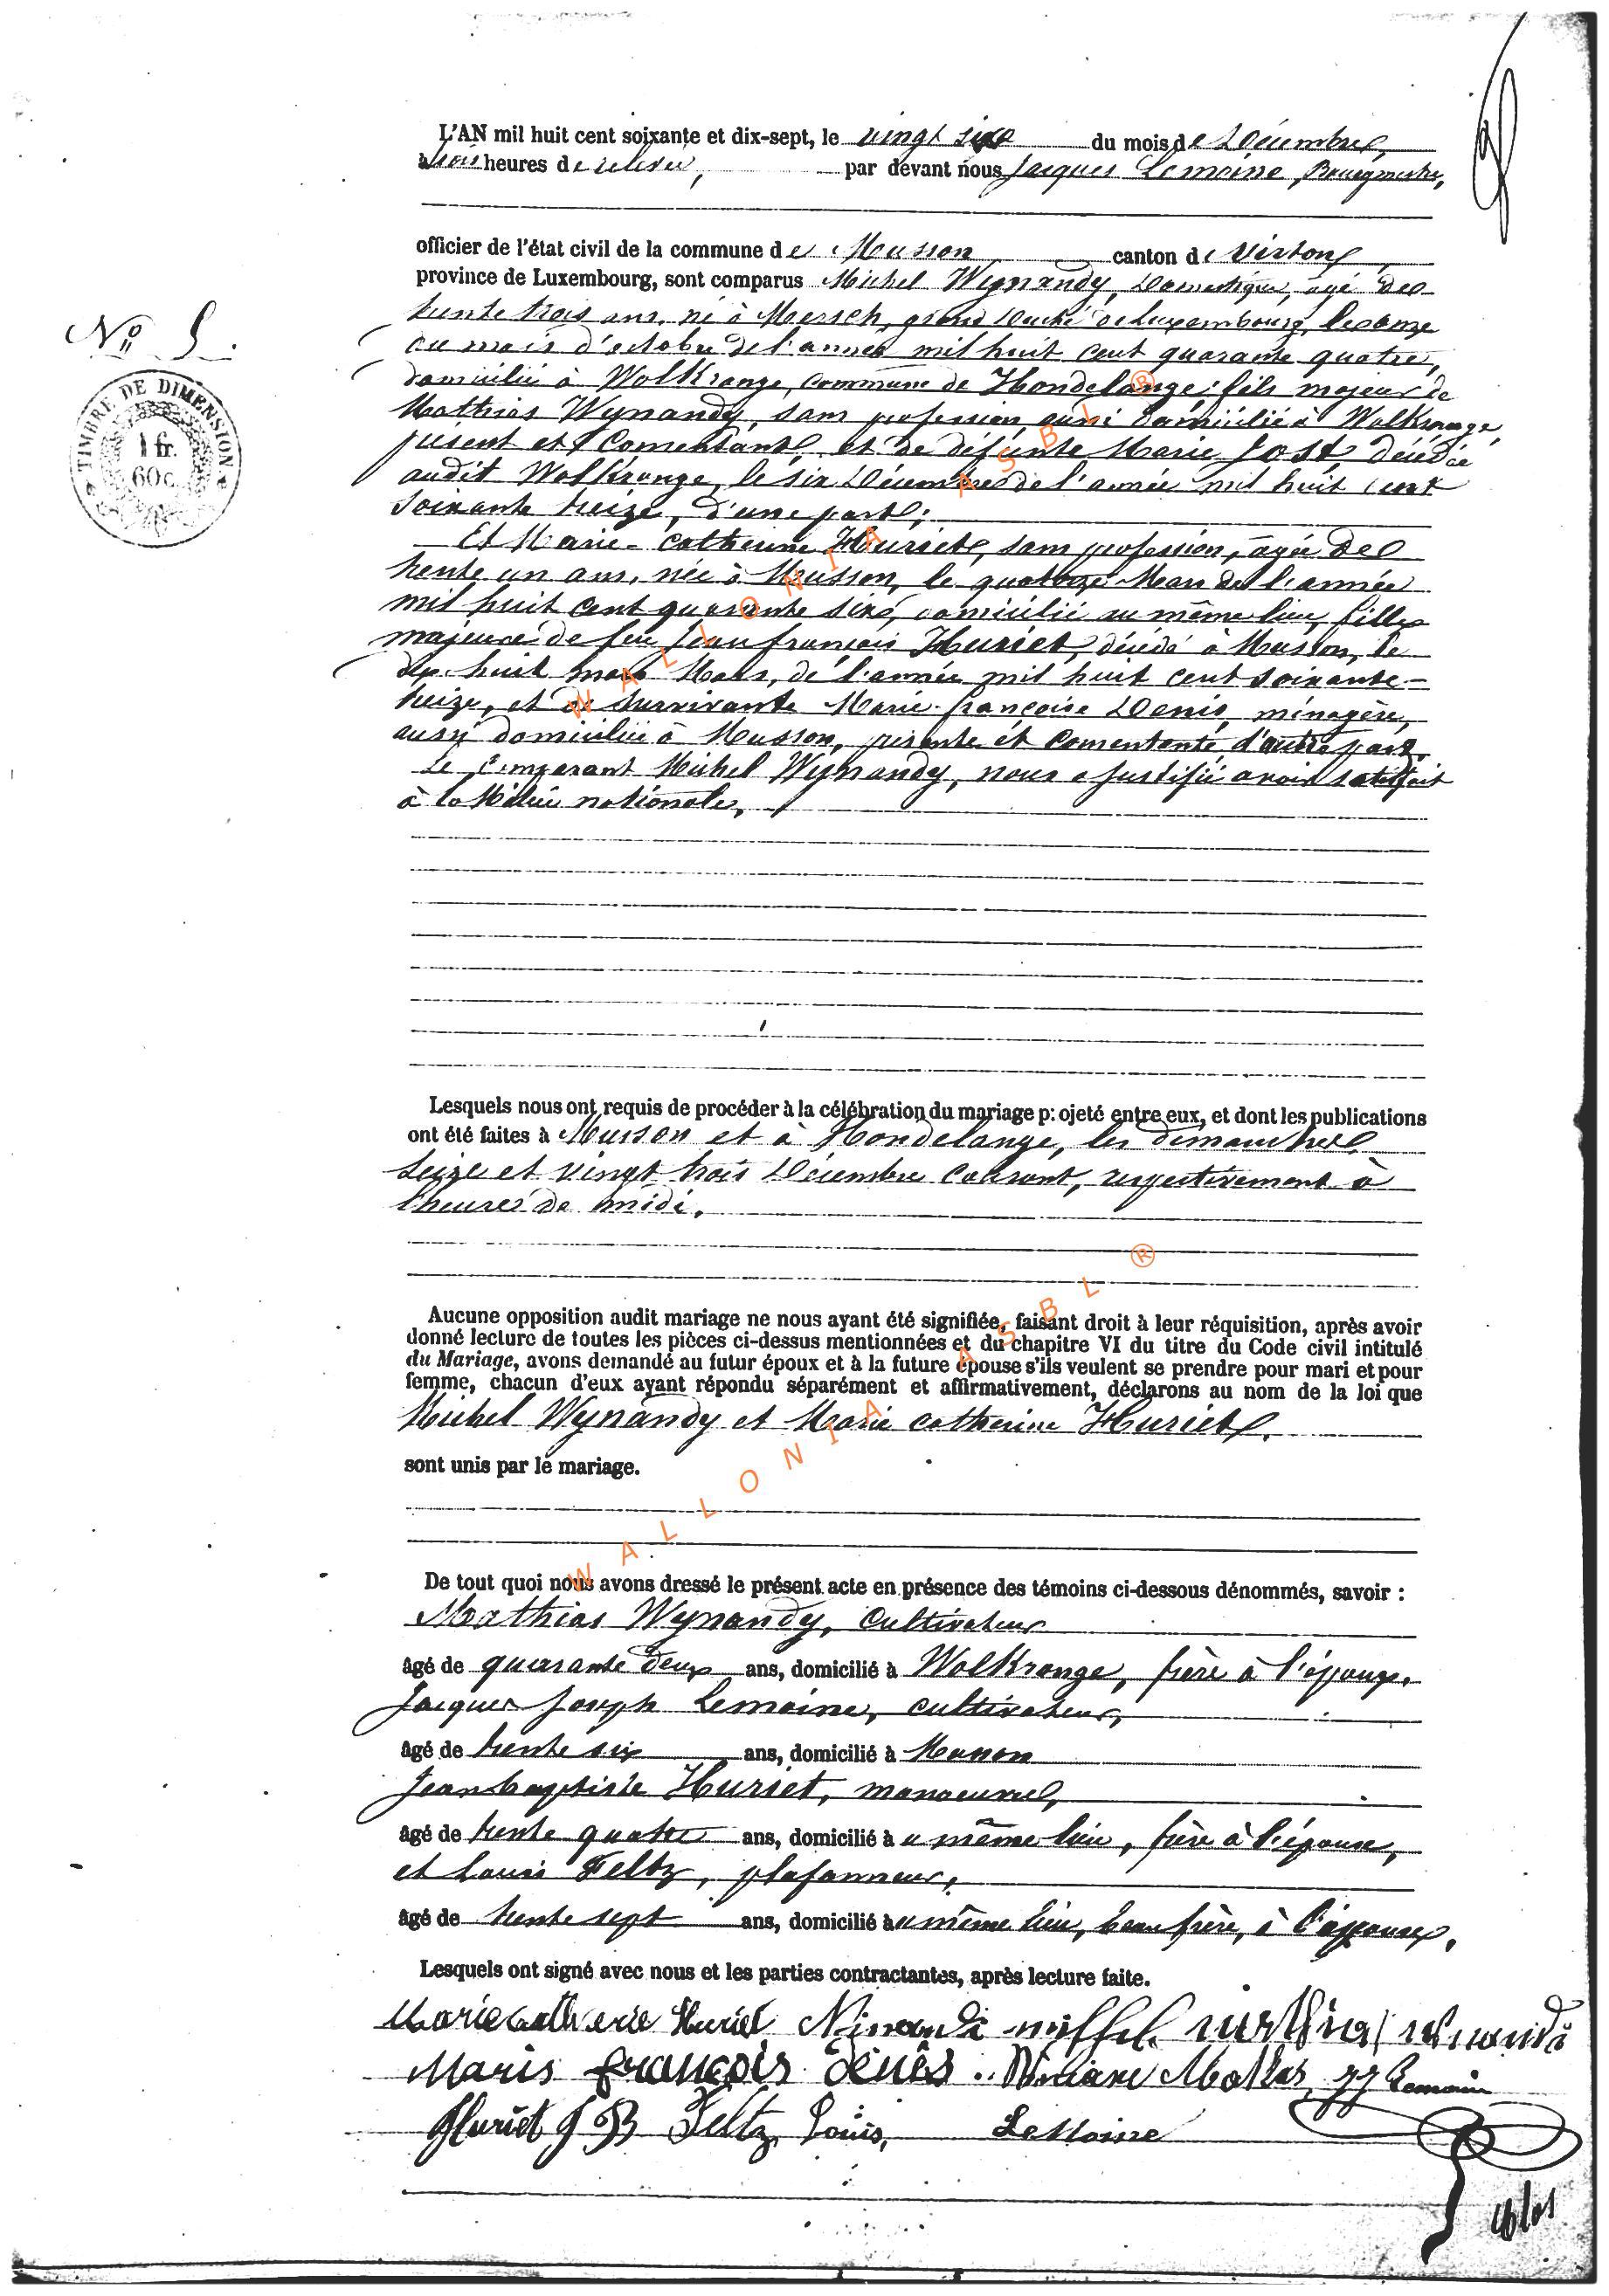 L'AN mil huit cent soixante et dix-sept, le vingt six du mois de Décembre,
à trois heures de relevée, par devant nous Jacques Lemoine, Bourgmestre,
officier de l'état civil de la commune de Musson canton de Virton,
province de Luxembourg, sont comparus Michel Wynandy, Domestique, agé de
trente trois ans, né à Mersch, grand Duché de Luxembourg, le onze
du mois d'octobre de l'année mil huit cent quarante quatre,
N° 5.
domicilié à Wolkrange, commune de Hondelange; fils majeur de
TIMBRE DE DIMENSION
1 fr.
60 c.
Mathias Wynandy, sans profession, aussi domicilié à Wolkrange,
présent et consentant, et de défunte Marie Jost, décédée
audit Wolkrange, le six Décembre de l'année mil huit cent
soixante treize, d'une part;
Et Marie-Catherine Huriet, sans profession, agée de
trente un ans, née à Musson, le quatorze Mars de l'année
mil huit cent quarante six, domiciliée au même lieu, fille
majeure de feu Jean françois Huriet, décédé à Musson, le
dix huit Mars, de l'année mil huit cent soixante-
treize, et de survivante Marie-françoise Denis, ménagère,
aussi domiciliée à Musson, présente et consentante, d'autre part.
Le comparant Michel Wynandy, nous a justifié avoir satisfait
à la Milice nationale,
Lesquels nous ont requis de procéder à la célébration du mariage projeté entre eux, et dont les publications
ont été faites à Musson et à Hondelange, les dimanches
seize et vingt trois Décembre courant, respectivement à
l'heure de midi.
Aucune opposition audit mariage ne nous ayant été signifiée, faisant droit à leur réquisition, après avoir
donné lecture de toutes les pièces ci-dessus mentionnées et du chapitre VI du titre du Code civil intitulé
du Mariage, avons demandé au futur époux et à la future épouse s'ils veulent se prendre pour mari et pour
femme, chacun d'eux ayant répondu séparément et affirmativement, déclarons au nom de la loi que
Michel Wynandy et Marie Catherine Huriet.
sont unis par le mariage.
De tout quoi nous avons dressé le présent acte en présence des témoins ci-dessous dénommés, savoir :
Mathias Wynandy, cultivateur
âgé de quarante deux ans, domicilié à Wolkrange, frère à l'époux.
Jacques Joseph Lemoine, cultivateur,
âgé de trente six ans, domicilié à Musson
Jean baptiste Huriet, manoeuvre,
âgé de trente quatre ans, domicilié au même lieu, frère à l'épouse,
et Louis Feltz, plafonneur,
âgé de trente sept ans, domicilié au même lieu, beau frère, à l'époux.
Lesquels ont signé avec nous et les parties contractantes, après lecture faite.
Marie catherie Huriet
Maris françois denês JJ Lemoine
Huriet J B Feltz Louis, Lemoine
WALLONIA ASBL ®
WALLONIA ASBL ®